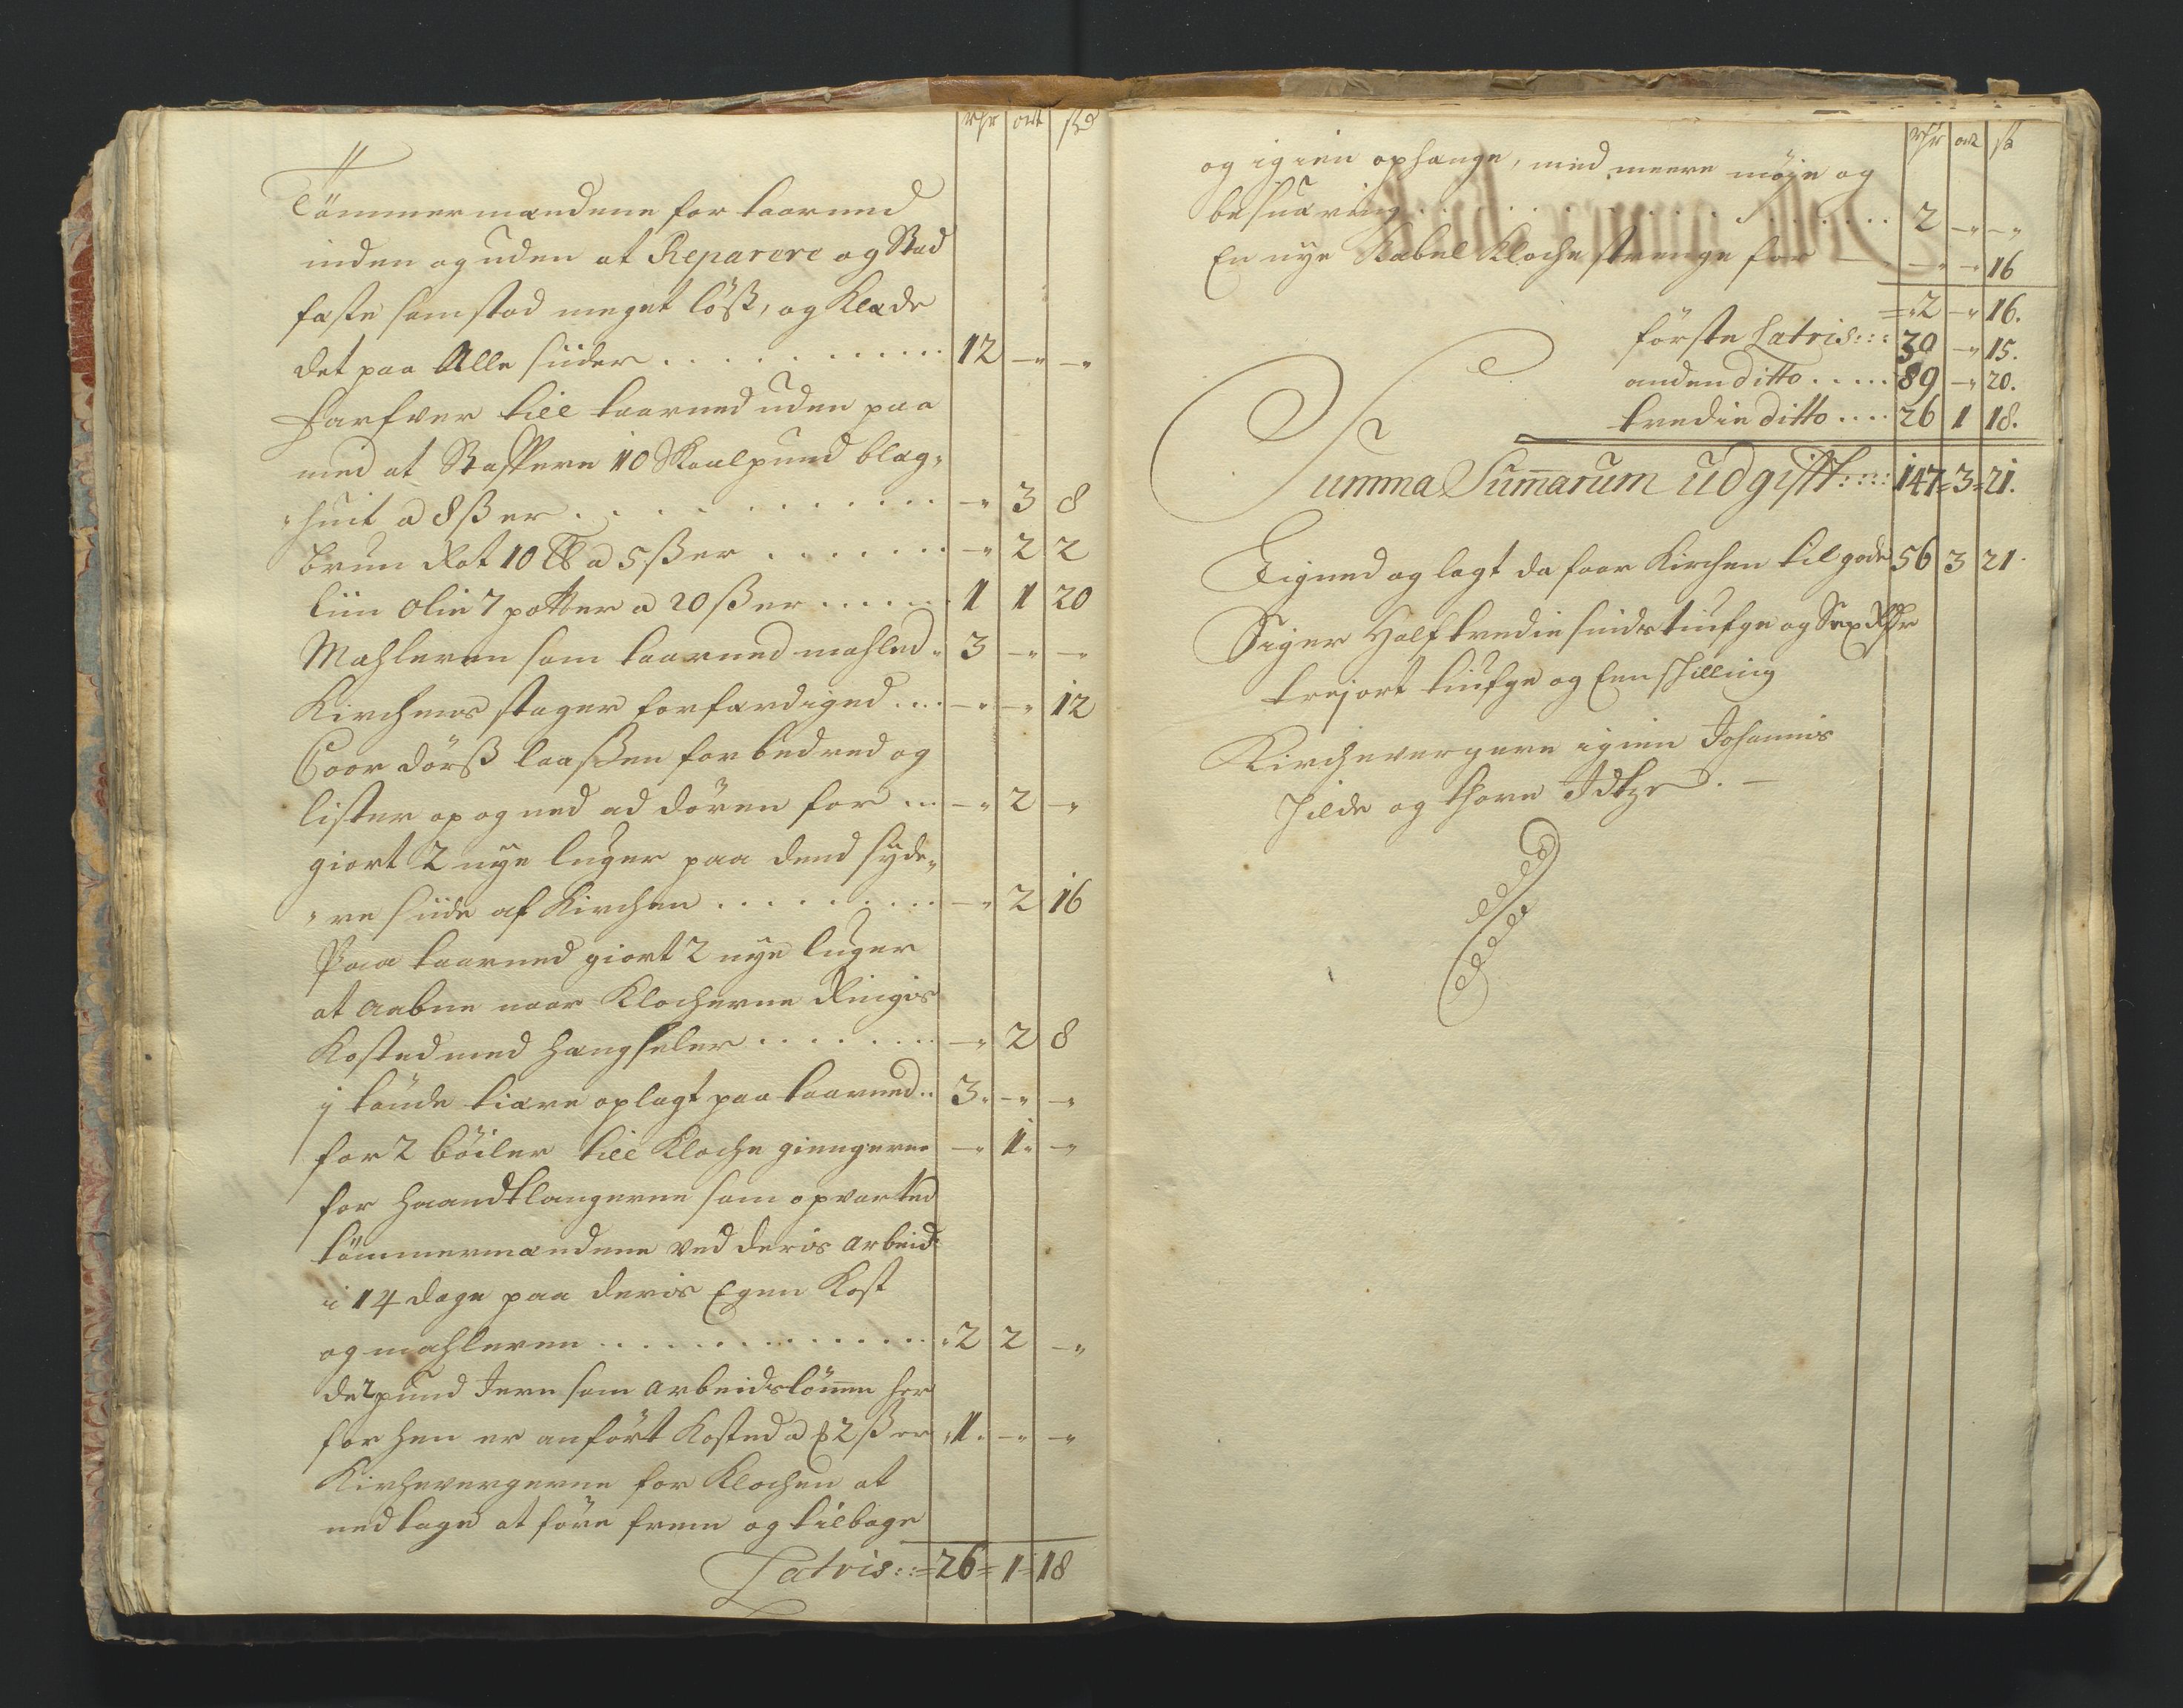 rdr ort sk
Tömmermændene for taarned
inden og uden at Reparere og Stad
fæste som stod meget löst, og Klæde
det paa Alle siider . . . . . . . . . . 12 -" -"
Farfver till taarned uden paa
med at Staffere 10 Skaalpund blag„
„huit a 8 ß er . . . . . . . . . . . -" 3 8
brun Rot 10 ℔ a 5 ß er . . . . . . . -" 2 2
liin olie 7 potter a 20 ß er . . . . . . 1 1 20
Mahleren som taarned mahled „ 3 -" -"
Kirchens stager forfærdiged . . . -" -" 12
Coor dörß laaßen forbedred og
lister op og ned ad dören for . . . -" 2 -"
giort 2 nye luger paa dend syde„
„re siide af Kirchen . . . . . . . . . -" 2 16
Paa taarned giort 2 nye luger
at aabne naar Klocherne Ringis
Kosted med hengseler . . . . . . . -" 2 8
j tönde tiære oplagt paa taarned . . 3 -" -"
for 2 böiler till Kloche giengerne -" 1 -"
for haandtlangerne som opvarted
tömmermændene ved deris arbeid
i 14 dage paa deris Egen Kost
og mahleren . . . . . . . . . . . . . . 2 2 -"
de 2 pund Jern som arbeidslönnen her
for hen er anfört Kosted a ℔ 2 ß er „1 -" -"
Kirchevergerne for Klochen at
nedtage at före frem og tilbage
Latris::=26=1=18
rdr ort sk
og igien ophænge, med meere möje og
besuæring . . . . . . . . . . . . . 2 -" -"
En nye Kabel Klochestrenge for — -" -" 16
=„2 -" 16.
förste Latris::: 30 -" 15.
anden ditto . . . . . 89 -" 20.
tredie ditto . . . . 26 1 18.
Summa Sum̄arum Udgifft::::147=3=21.
Eigned og lagt da faar Kirchen til gode 56 3 21.
Siger Halftredie sinds tiufge og Sex Rdr
trejort tiufge og Een skilling
Kirchevergere igien Johannis
Jilde og Thore Idtze . —